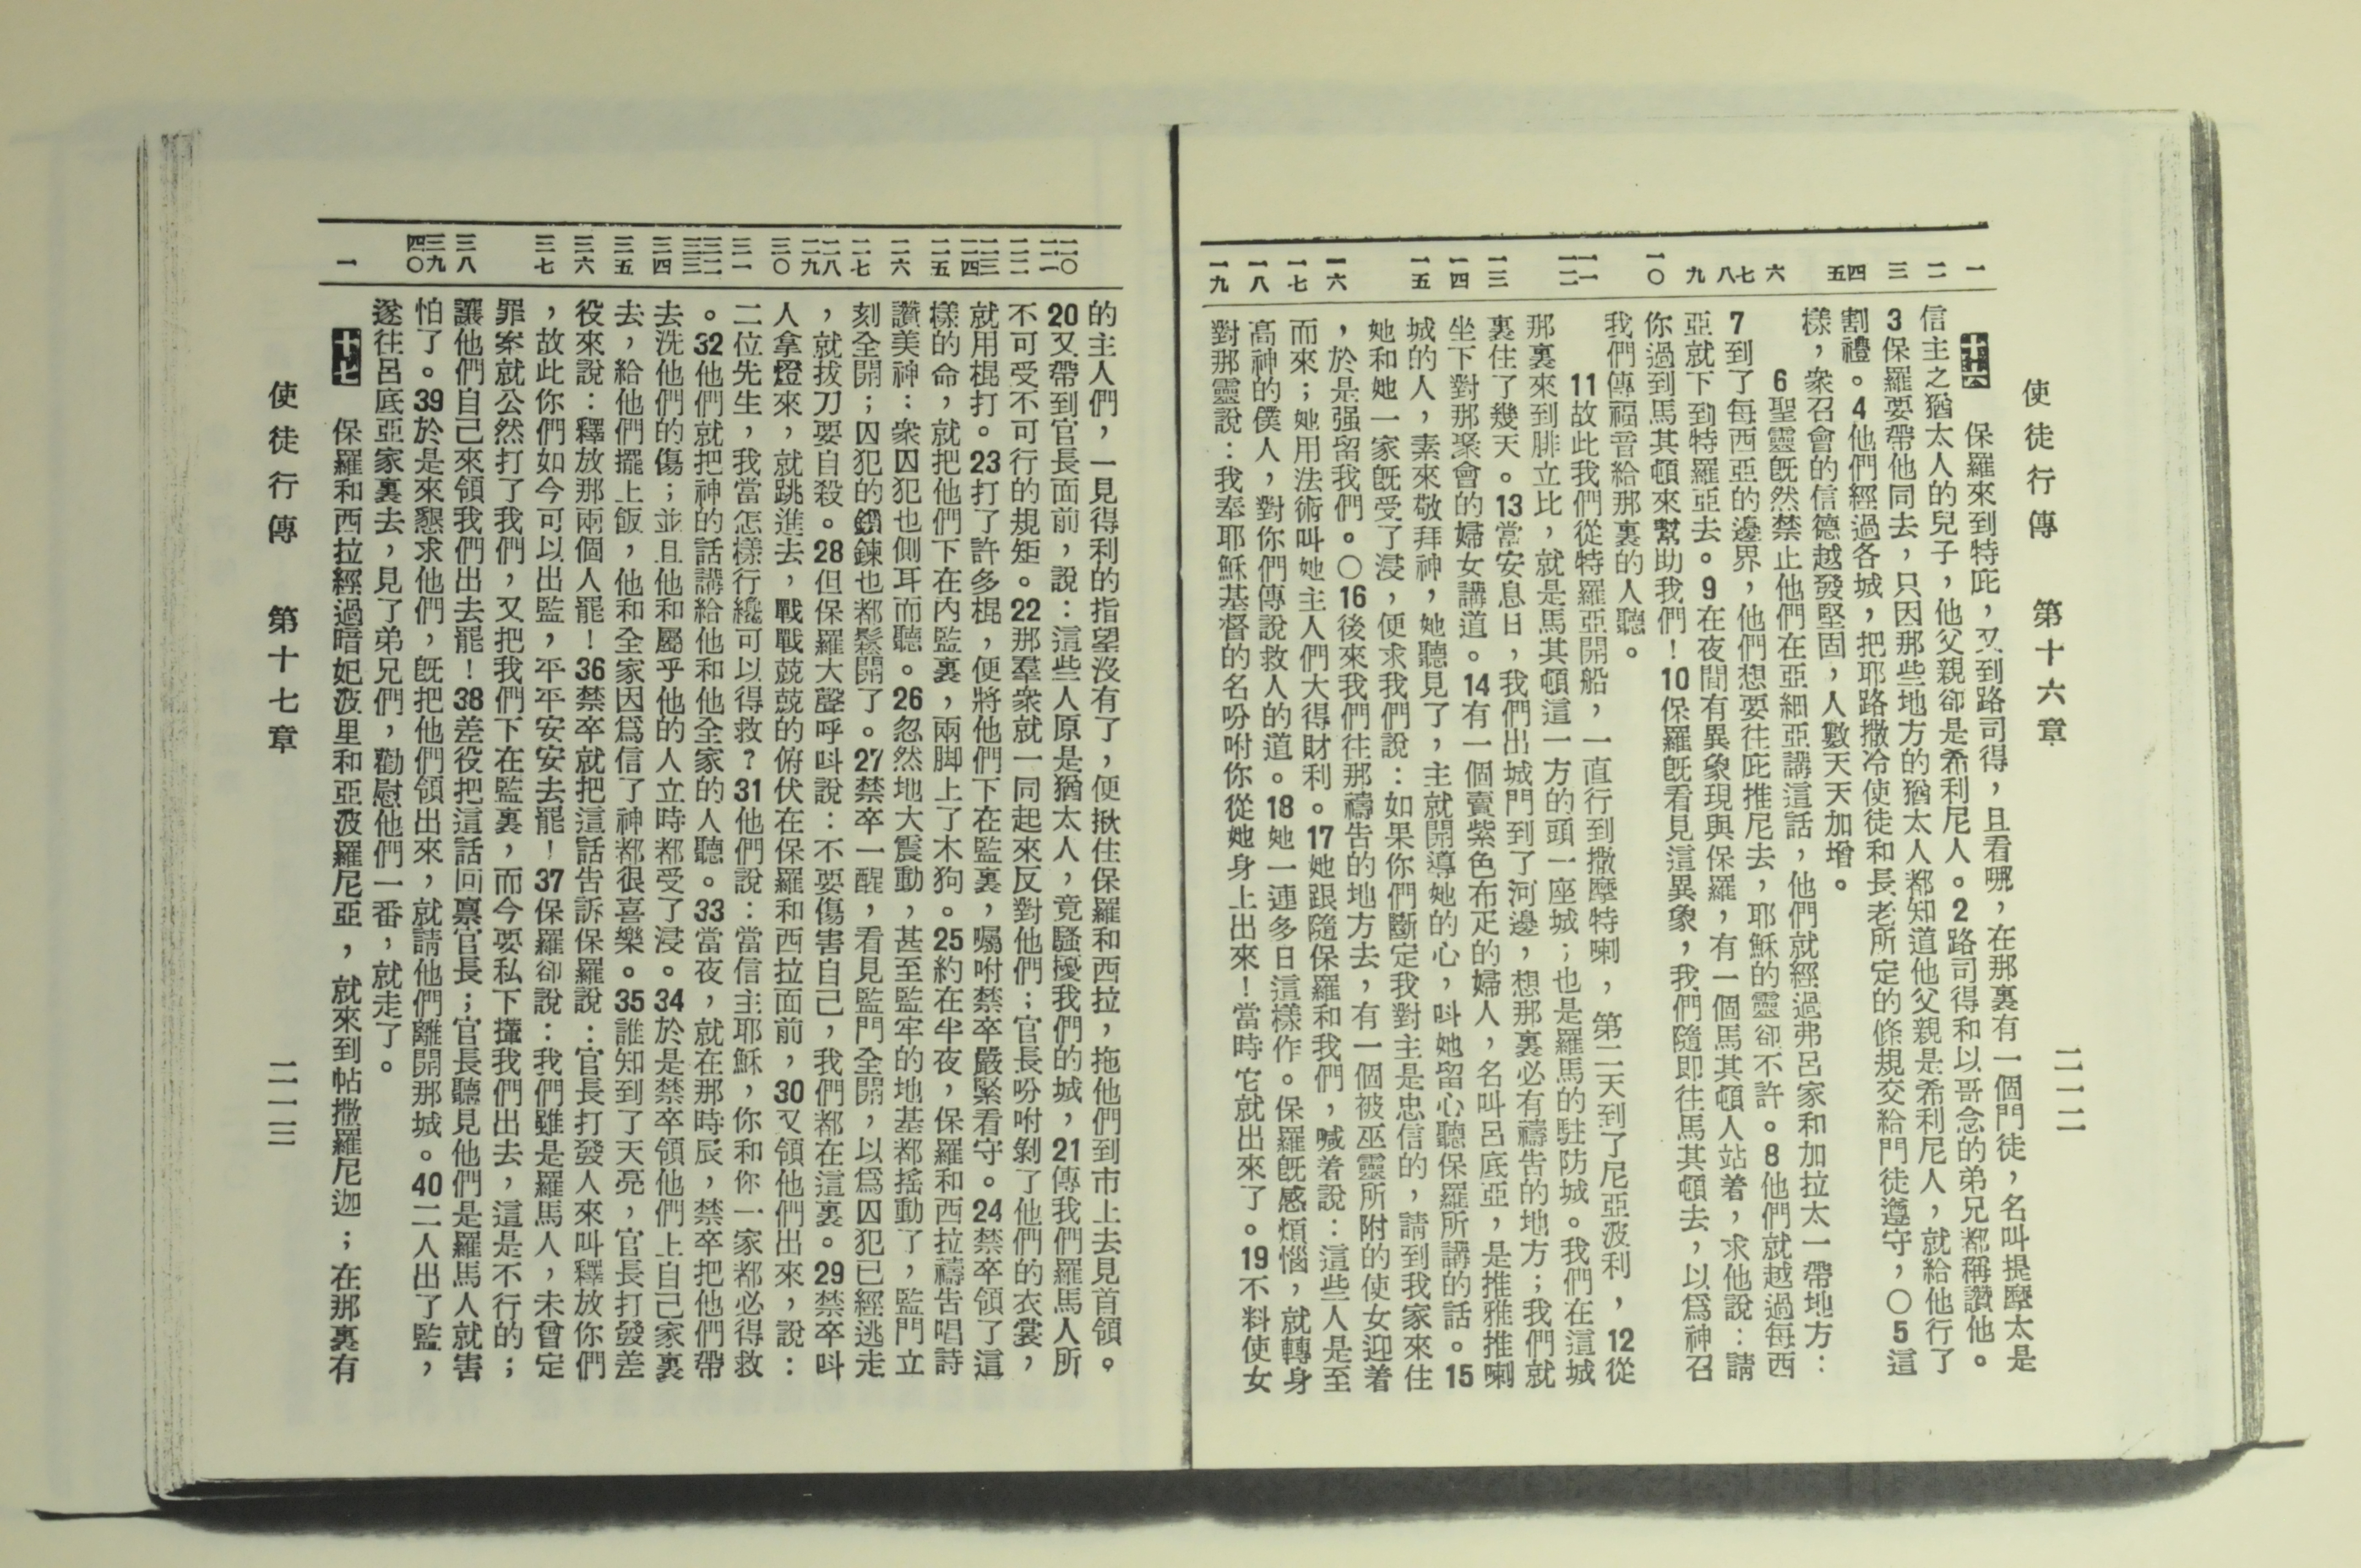 使徒行傳　第十六章　二一二
一 二 三 四 五 六 七 八 九 一〇 一一 一二 一三 一四 一五 一六 一七 一八 一九
十六　保羅來到特庇，又到路司得，且看哪，在那裏有一個門徒，名叫提摩太是
信主之猶太人的兒子，他父親卻是希利尼人。2路司得和以哥念的弟兄都稱讚他。
3保羅要帶他同去，只因那些地方的猶太人都知道他父親是希利尼人，就給他行了
割禮。4他們經過各城，把耶路撒冷使徒和長老所定的條規交給門徒遵守，〇5這
樣，衆召會的信德越發堅固，人數天天加增。
6聖靈旣然禁止他們在亞細亞講這話，他們就經過弗呂家和加拉太一帶地方：
7到了每西亞的邊界，他們想要往庇推尼去，耶穌的靈卻不許。8他們就越過每西
亞就下到特羅亞去。9在夜間有異象現與保羅，有一個馬其頓人站着，求他說：請
你過到馬其頓來幫助我們！10保羅旣看見這異象，我們隨即往馬其頓去，以爲神召
我們傳福音給那裏的人聽。
11故此我們從特羅亞開船，一直行到撒摩特喇，第二天到了尼亞波利，12從
那裏來到腓立比，就是馬其頓這一方的頭一座城；也是羅馬的駐防城。我們在這城
裏住了幾天。13當安息日，我們出城門到了河邊，想那裏必有禱告的地方；我們就
坐下對那聚會的婦女講道。14有一個賣紫色布疋的婦人，名叫呂底亞，是推雅推喇
城的人，素來敬拜神，她聽見了，主就開導她的心，叫她留心聽保羅所講的話。15
她和她一家旣受了浸，便求我們說：如果你們斷定我對主是忠信的，請到我家來住
，於是强留我們。〇16後來我們往那禱告的地方去，有一個被巫靈所附的使女迎着
而來；她用法術叫她主人們大得財利。17她跟隨保羅和我們，喊着說：這些人是至
高神的僕人，對你們傳說救人的道。18她一連多日這樣作。保羅旣感煩惱，就轉身
對那靈說：我奉耶穌基督的名吩咐你從她身上出來！當時它就出來了。19不料使女
二〇 二一 二二 二三 二四 二五 二六 二七 二八 二九 三〇 三一 三二 三三 三四 三五 三六 三七 三八 三九 四〇 一
的主人們，一見得利的指望沒有了，便揪住保羅和西拉，拖他們到市上去見首領。
20又帶到官長面前，說：這些人原是猶太人，竟騷擾我們的城，21傳我們羅馬人所
不可受不可行的規矩。22那羣衆就一同起來反對他們；官長吩咐剝了他們的衣裳，
就用棍打。23打了許多棍，便將他們下在監裏，囑咐禁卒嚴緊看守。24禁卒領了這
樣的命，就把他們下在內監裏，兩脚上了木狗。25約在半夜，保羅和西拉禱告唱詩
讚美神：衆囚犯也側耳而聽。26忽然地大震動，甚至監牢的地基都搖動了，監門立
刻全開；囚犯的鎖鍊也都鬆開了。27禁卒一醒，看見監門全開，以爲囚犯已經逃走
，就拔刀要自殺。28但保羅大聲呼叫說：不要傷害自己，我們都在這裏。29禁卒叫
人拿燈來，就跳進去，戰戰兢兢的俯伏在保羅和西拉面前，30又領他們出來，說：
二位先生，我當怎樣行纔可以得救？31他們說：當信主耶穌，你和你一家都必得救
。32他們就把神的話講給他和他全家的人聽。33當夜，就在那時辰，禁卒把他們帶
去洗他們的傷；並且他和屬乎他的人立時都受了浸。34於是禁卒領他們上自己家裏
去，給他們擺上飯，他和全家因爲信了神都很喜樂。35誰知到了天亮，官長打發差
役來說：釋放那兩個人罷！36禁卒就把這話告訴保羅說：官長打發人來叫釋放你們
，故此你們如今可以出監，平平安安去罷！37保羅卻說：我們雖是羅馬人，未曾定
罪案就公然打了我們，又把我們下在監裏，而今要私下攆我們出去，這是不行的；
讓他們自己來領我們出去罷！38差役把這話回禀官長；官長聽見他們是羅馬人就害
怕了。39於是來懇求他們，旣把他們領出來，就請他們離開那城。40二人出了監，
遂往呂底亞家裏去，見了弟兄們，勸慰他們一番，就走了。
十七　保羅和西拉經過暗妃波里和亞波羅尼亞，就來到帖撒羅尼迦；在那裏有
使徒行傳　第十七章　二一三